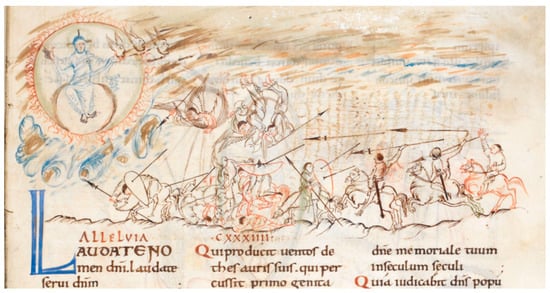 ALLELVIA
LAUDATE NO
men dñi. laudate
serui dñm
·CXXXIIII·
Qui producit uentos de
thesauris suis. qui per
cussit primogenita
dñe memoriale tuum
in seculum seculi
Quia iudicabit dñs popu